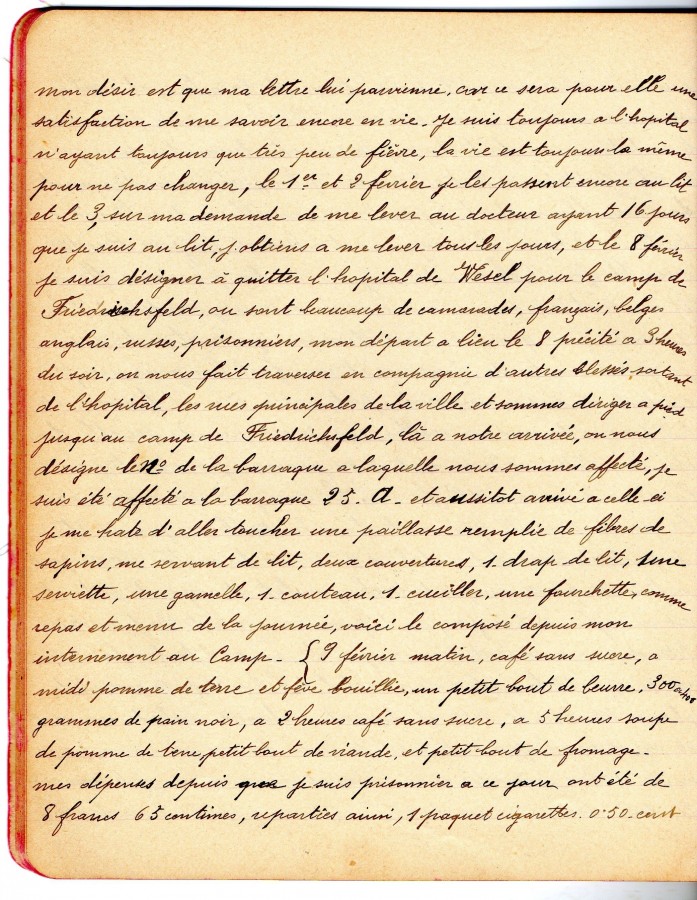 mon désir est que ma lettre lui parvienne, car ce sera pour elle une
satisfaction de me savoir encore en vie. Je suis toujours a l'hopital
n'ayant toujours que très peu de fièvre, la vie est toujours la même
pour ne pas changer, le 1er et 2 février je les passent encore au lit
et le 3, sur ma demande de me lever au docteur ayant 16 jours
que je suis au lit, j'obtiens a me lever tous les jours, et le 8 février
je suis désigner à quitter l'hopital de Wesel pour le camp de
Friedrichsfeld, ou sont beaucoup de camarades, français, belges
anglais, russes, prisonniers, mon départ a lieu le 8 précité a 3 heures
du soir, on nous fait traverser en compagnie d'autres blessés sortant
de l'hopital, les rues principales de la ville et sommes diriger a pied
jusqu'au camp de Friedrichsfeld, là a notre arrivée, on nous
désigne le No de la barraque a laquelle nous sommes affecté, je
suis été affecté a la barraque 25. A - et aussitot arrivé a celle-ci
je me hate d'aller toucher une paillasse remplie de fibres de
sapins, me servant de lit, deux couvertures, 1 drap de lit, 1 une
serviette, une gamelle, 1 - couteau, 1 - cueiller, une fourchette, comme
repas et menu de la journée, voici le composé depuis mon
internement au Camp - { 9 février matin, café sans sucre, a
midi pomme de terre et fève bouillie, un petit bout de beurre, 300 a 400
grammes de pain noir, a 2 heures café sans sucre, a 5 heures soupe
de pomme de terre petit bout de viande, et petit bout de fromage -
mes dépenses depuis que je suis prisonnier a ce jour ont été de
8 francs 65 centimes, reparties ainsi, 1 paquet cigarettes. 0.50 - cent